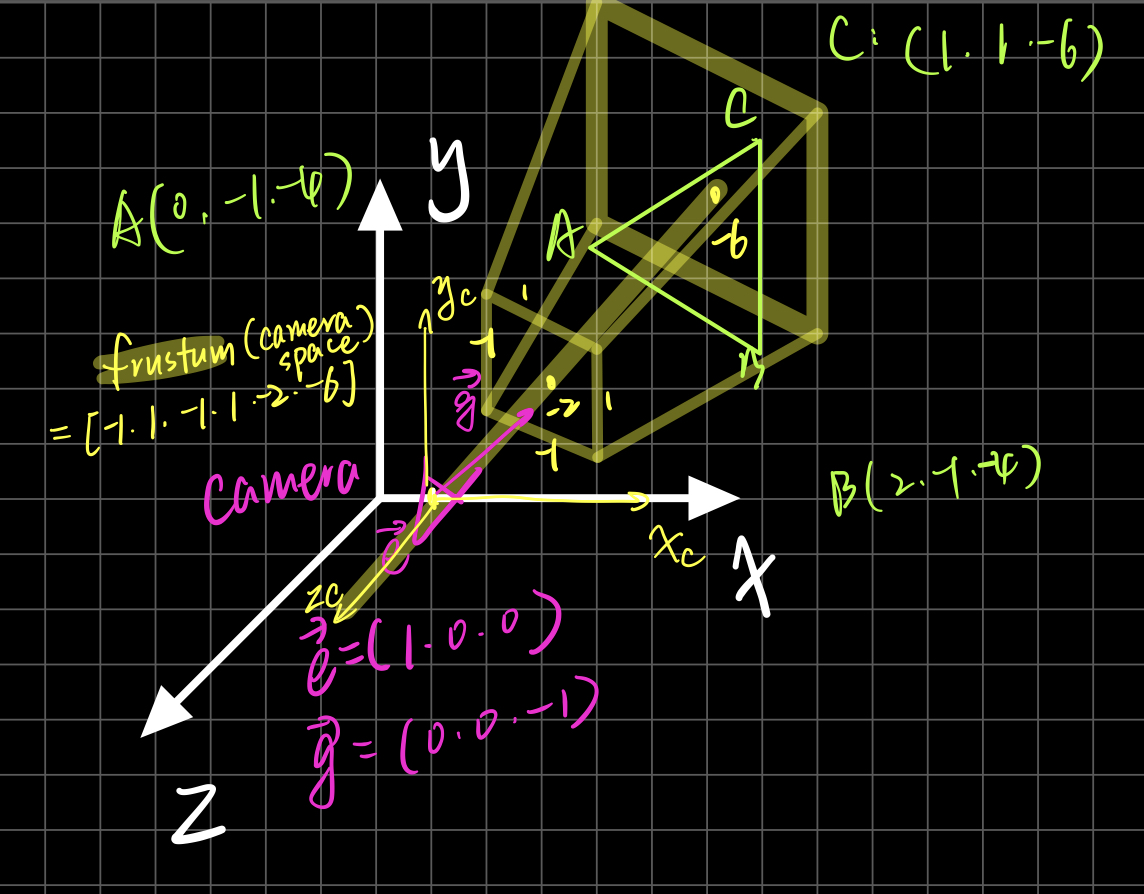 C: (1. 1. -6)
y
C
A(0. -1. -4)
A
-6
yc
1
-1
frustum (camera space)
= [-1. 1. -1. 1. -2. -6]
g
-2
1
-1
B
B(2. -1. -4)
Camera
e
xc
X
zc
e = (1. 0. 0)
g = (0. 0. -1)
Z